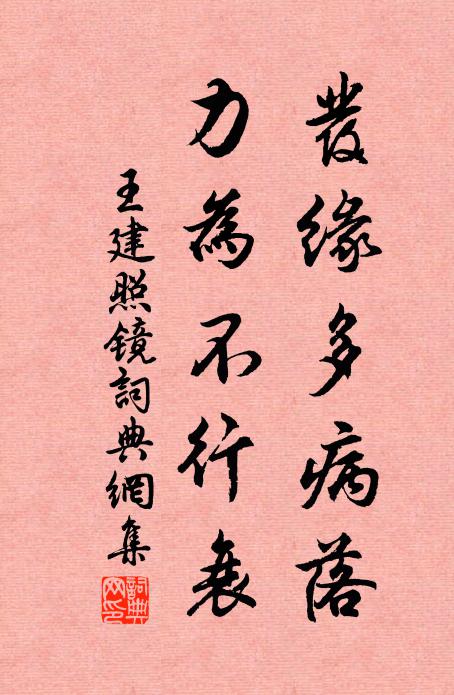 發緣多病落
力為不行衰
王建照镜詞典網集
詞典網印